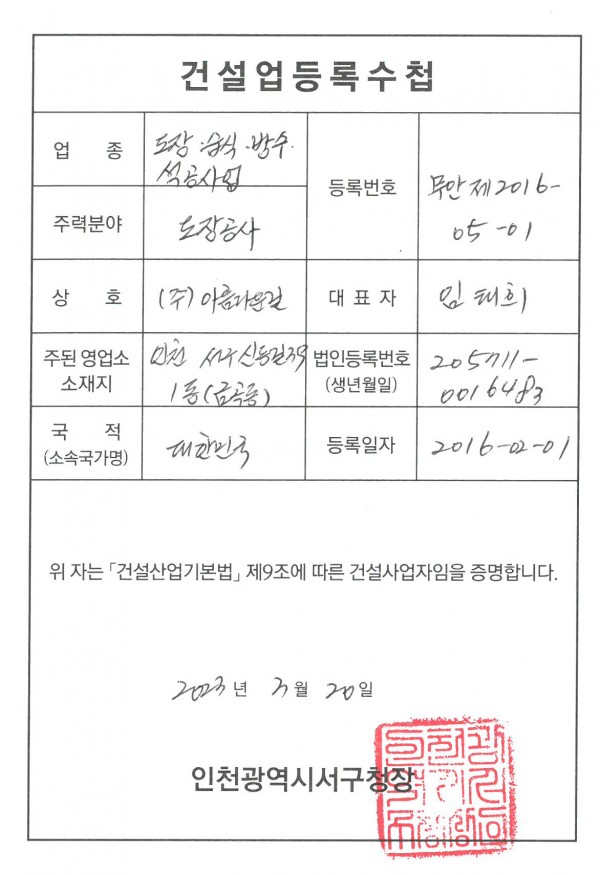 건설업등록수첩
업 종
도장·습식·방수·
석공사업
주력분야
도장공사
등록번호
무안 제2016-
05-01
상 호
(주) 아름다운길
대 표 자
임태희
주된 영업소
소재지
인천 서구
1동(금곡동)
법인등록번호
(생년월일)
205711-
0016483
국 적
(소속국가명)
대한민국
등록일자
2016-02-01
위 자는 「건설산업기본법」 제9조에 따른 건설사업자임을 증명합니다.
2023 년 3 월 20 일
인천광역시서구청장